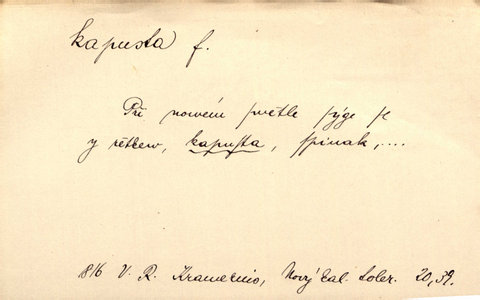 kapusta f.
Při nowém swětle sýge se
y ředkew, kapusta, sspinak,....
816 V. R. Kramerius, Nový kal. toler. 20, 39.